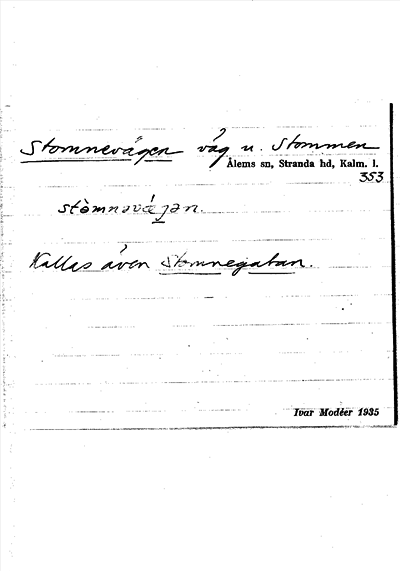 Stomnevägen väg u. Stommen
Ålems sn, Stranda hd, Kalm. l.
353
stòmnəvǽjən.
Kallas även Stomnegatan.
Ivar Modéer 1935